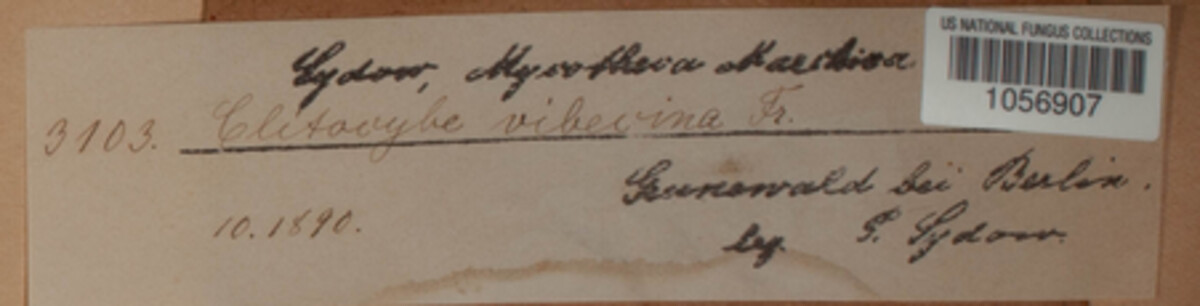 Sydow, Mycotheca Marchica
US NATIONAL FUNGUS COLLECTIONS
1056907
3103. Clitocybe vibecina Fr.
Grunewald bei Berlin.
10.1890.
leg. P. Sydow.